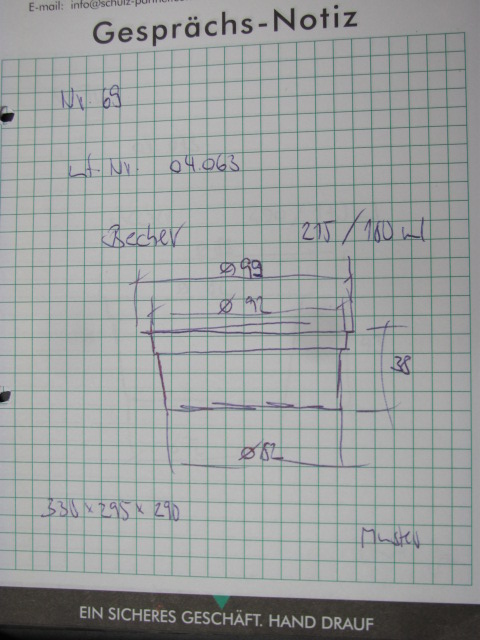 E-mail: info@schulz-partner.
Gesprächs-Notiz
Nr. 69
Lf. Nr. 04.063
Becher 215/180 ml
ø 99
ø 92
38
ø 82
330 x 295 x 290
Muster
EIN SICHERES GESCHÄFT. HAND DRAUF